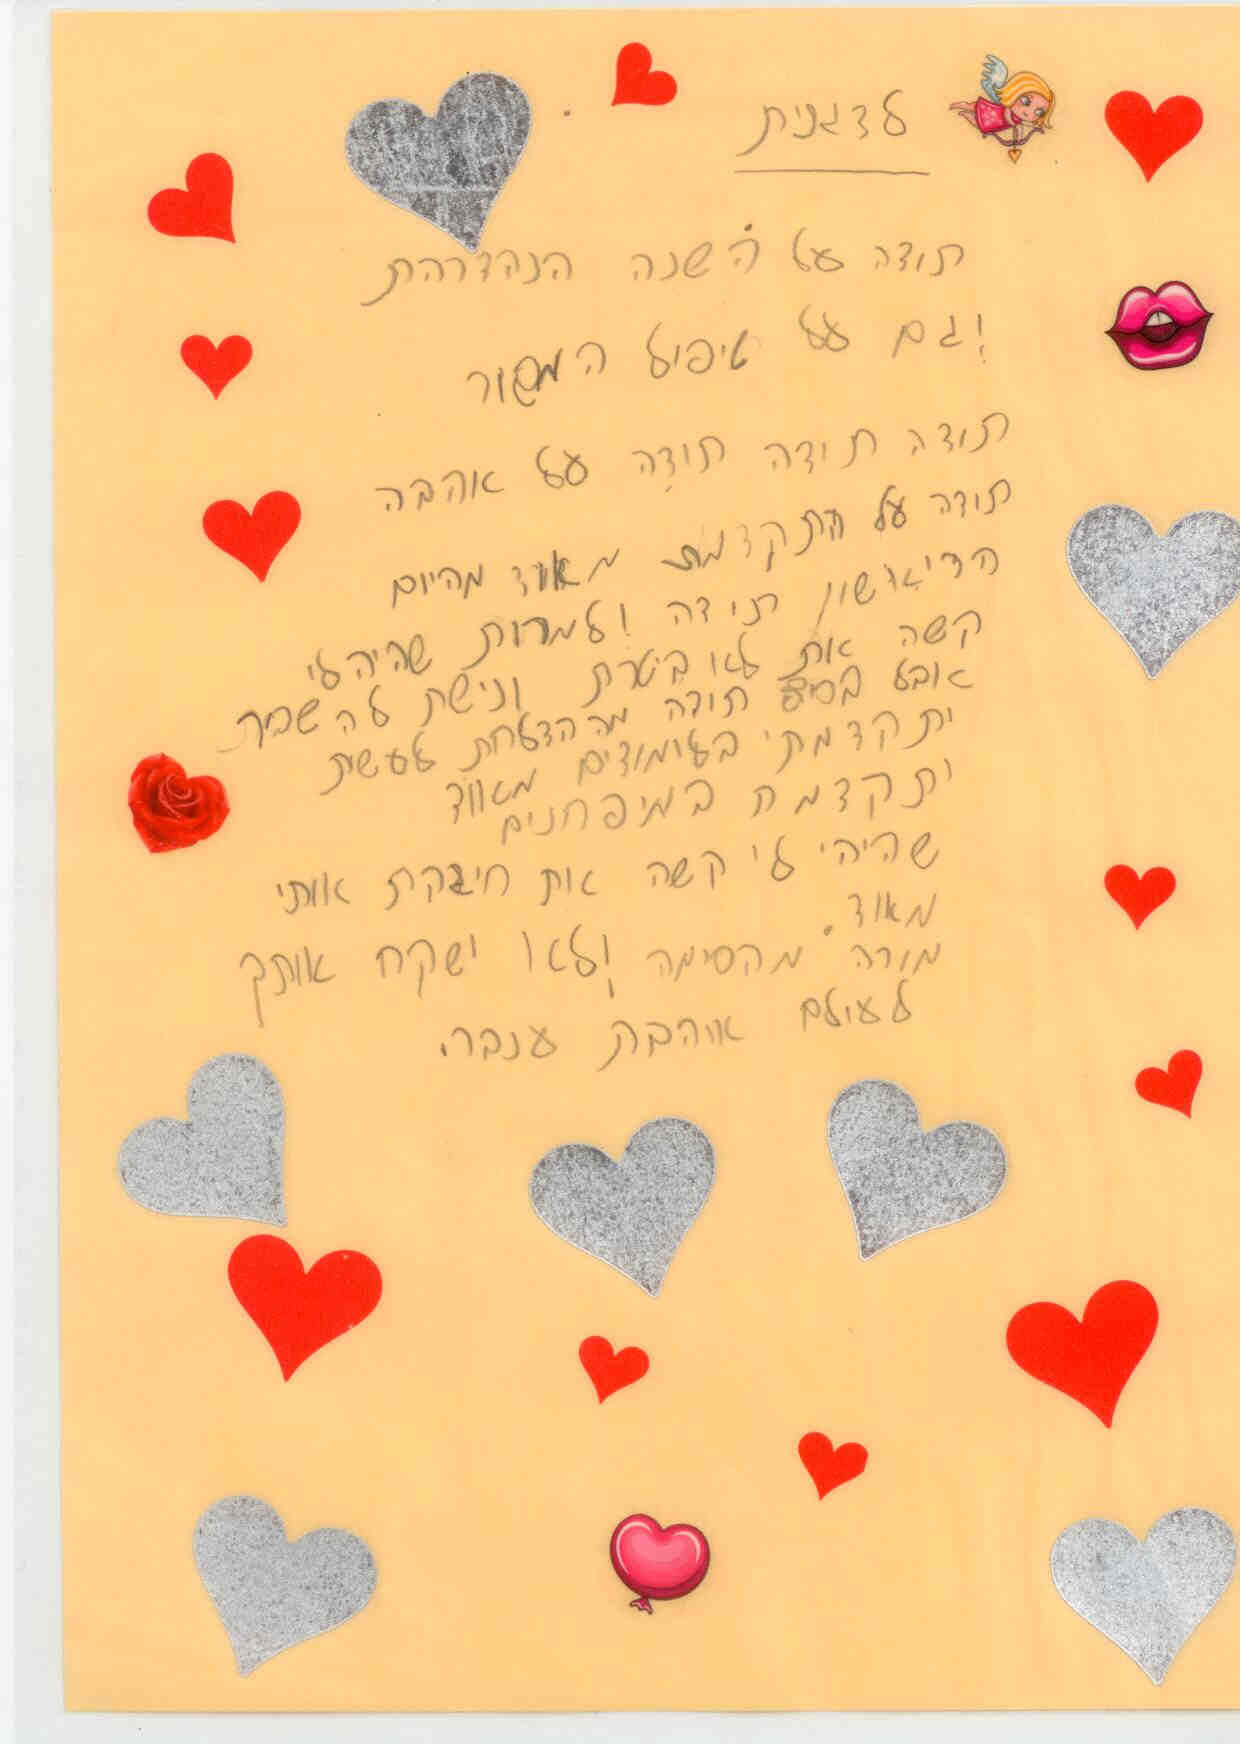 לדגנית
תודה על השנה הנהדרהת
וגם על טיפול המסור
תודה תודה תודה על אהבה
תודה על התקדמת מאוד מהיום
הריאשון תודה ולמרות שהיה לי
קשה את לאו ביטרת ונישת להשביר
אובל בסיפ תודה מה הדצלחת לעשית
יתקדמתי בלימודים מאווד
יתקדמת במיפחנים
שהיהי לי קשה את חיבקת אותי
מאוד.
מורה מהסימה ולאו ישקח אותך
לעולם אוהבת ענבר.